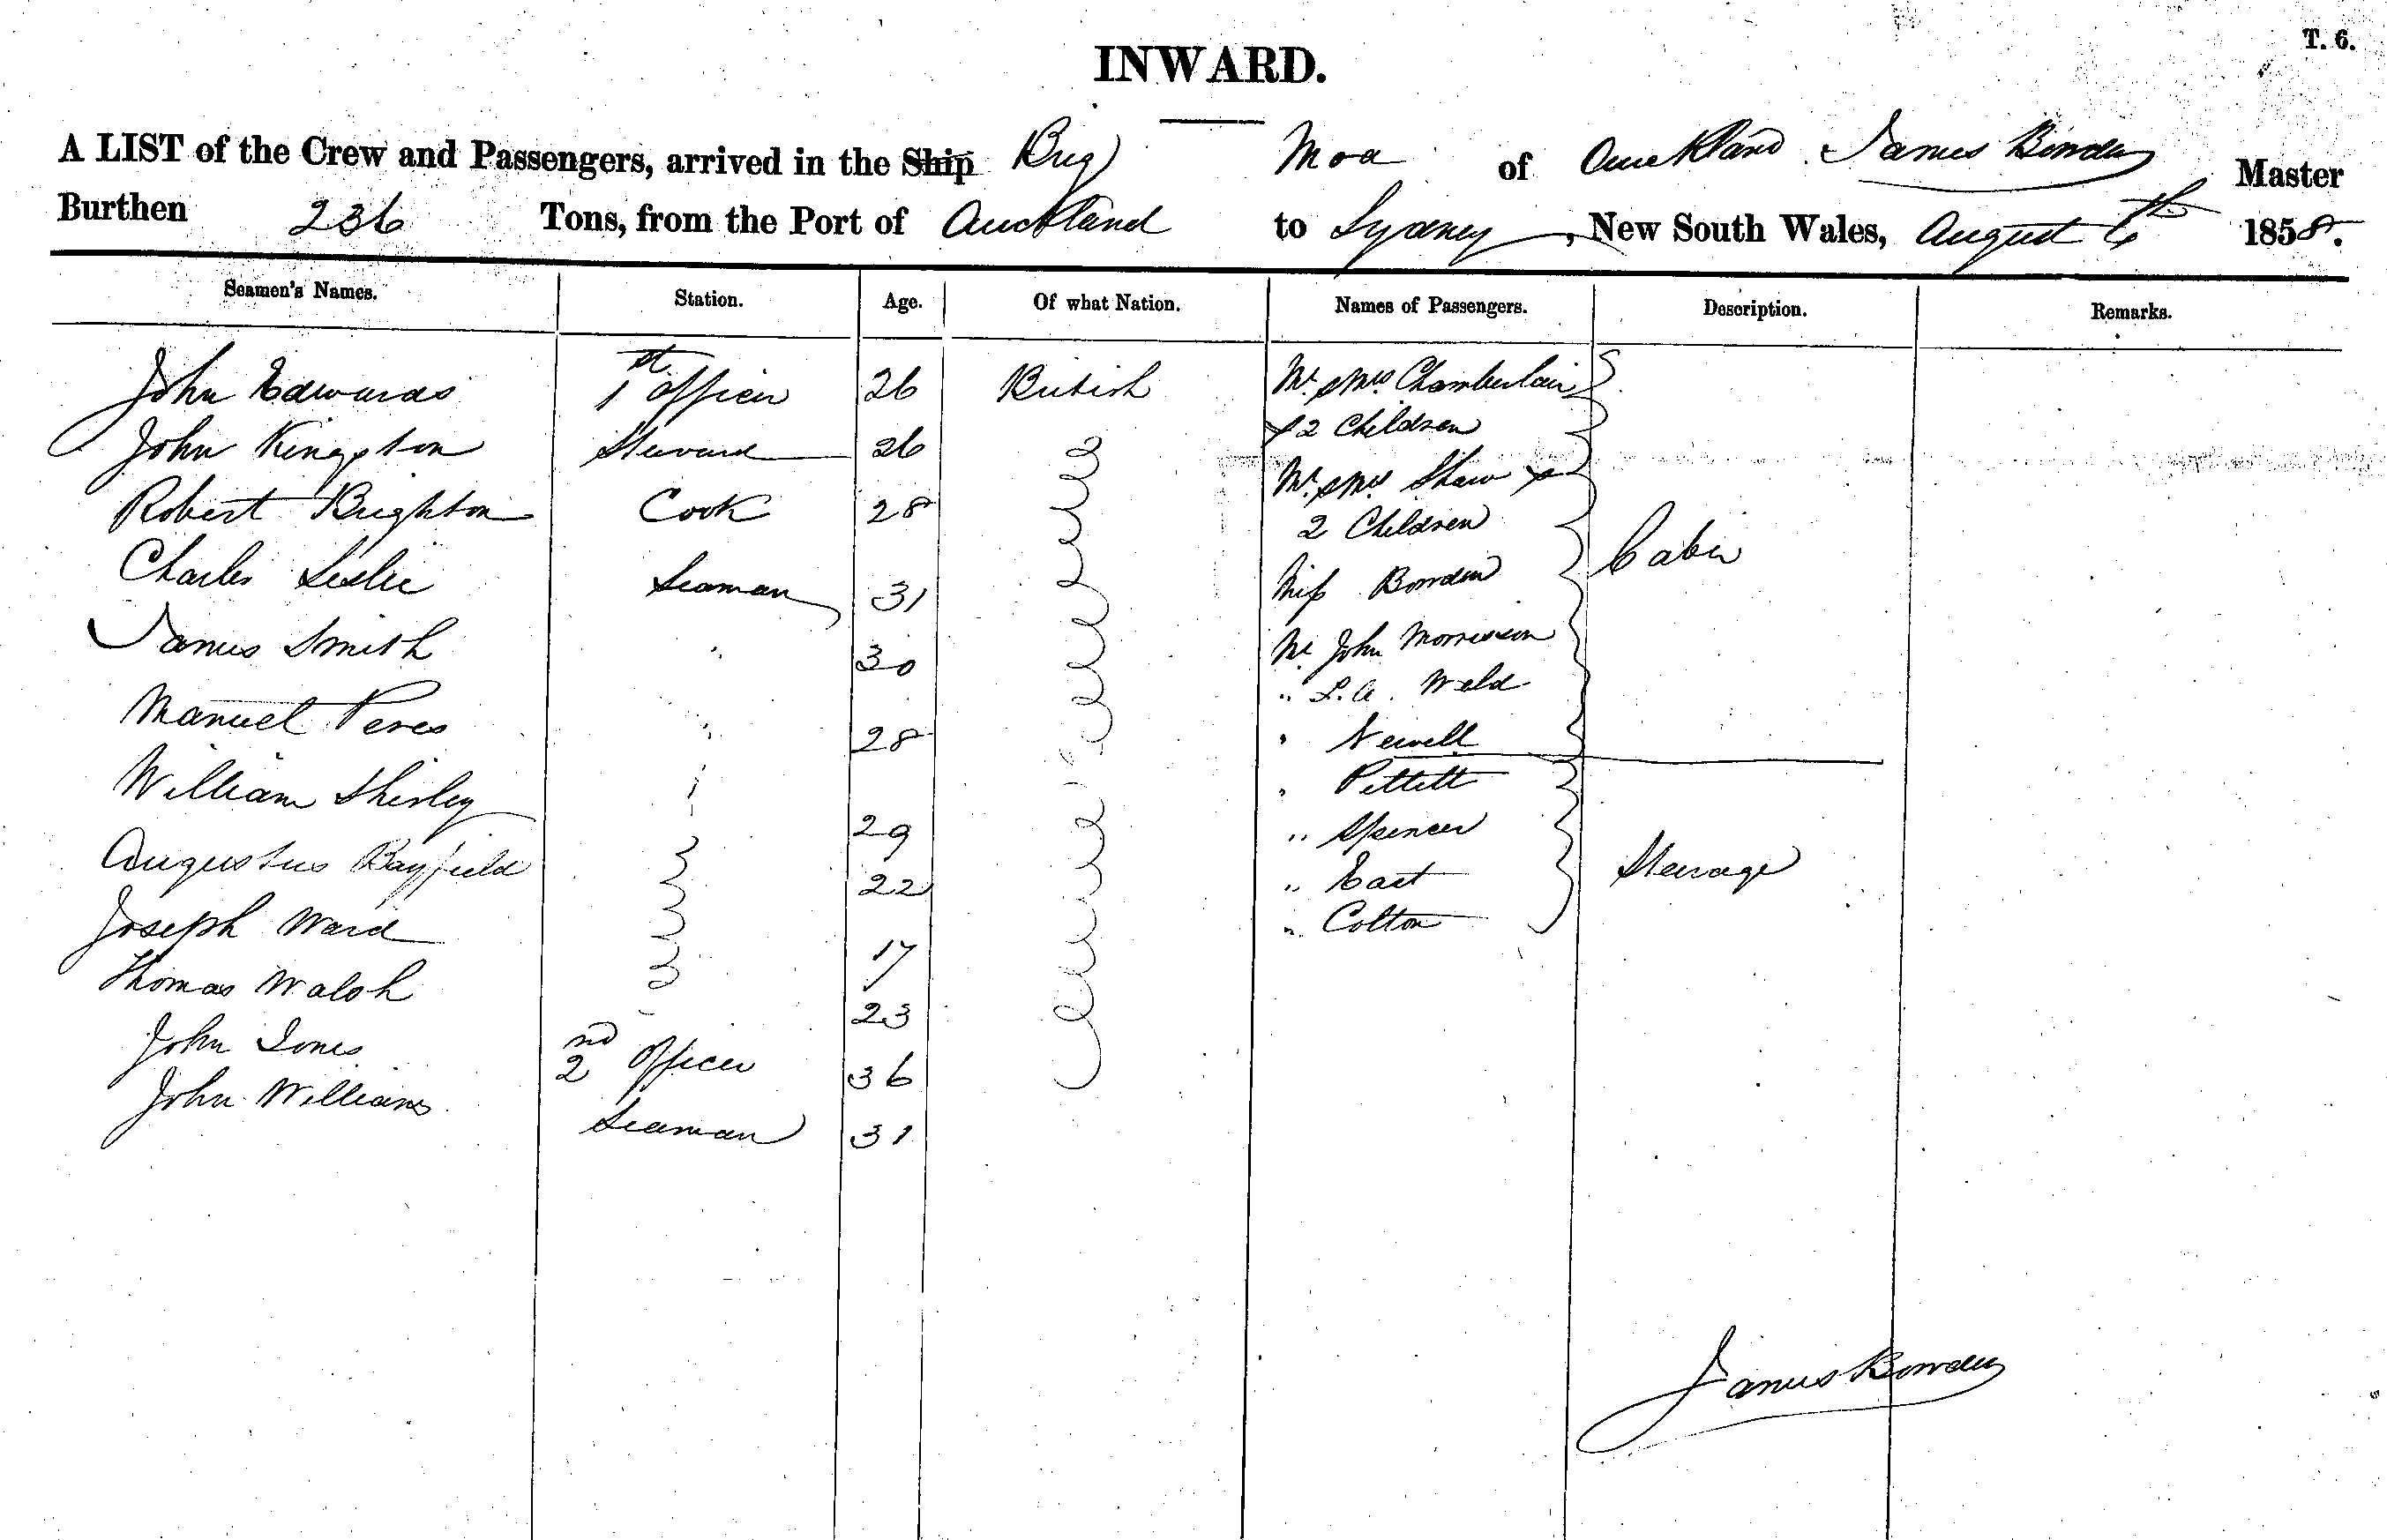 T. 6.
INWARD.
A LIST of the Crew and Passengers, arrived in the Ship Brig Moa of Auckland James Bowden Master
Burthen 236 Tons, from the Port of Auckland to Sydney, New South Wales, August 6th 1858.
Seamen's Names. Station. Age. Of what Nation. Names of Passengers. Description. Remarks.
John Edwards 1st Officer 26 British Mr. & Mrs. Chamberlain
& 2 Children
John Kingston Steward 26
Mr. & Mrs Shaw &
Robert Brighton Cook 28 2 Children
Cabin
Charles Leslie Seaman 31 Miss Bowden
James Smith " 30 Mr John Morrison
" L. A. Weld
Manuel Peres " 28 " Newell
William Shirley " 29 " Pettett
" Spencer
Augustus Bayfield 22 " East Steerage
Joseph Ward 17 " Colton
Thomas Walsh 23
John Jones 2nd Officer 36
John Williams Seaman 31
James Bowden